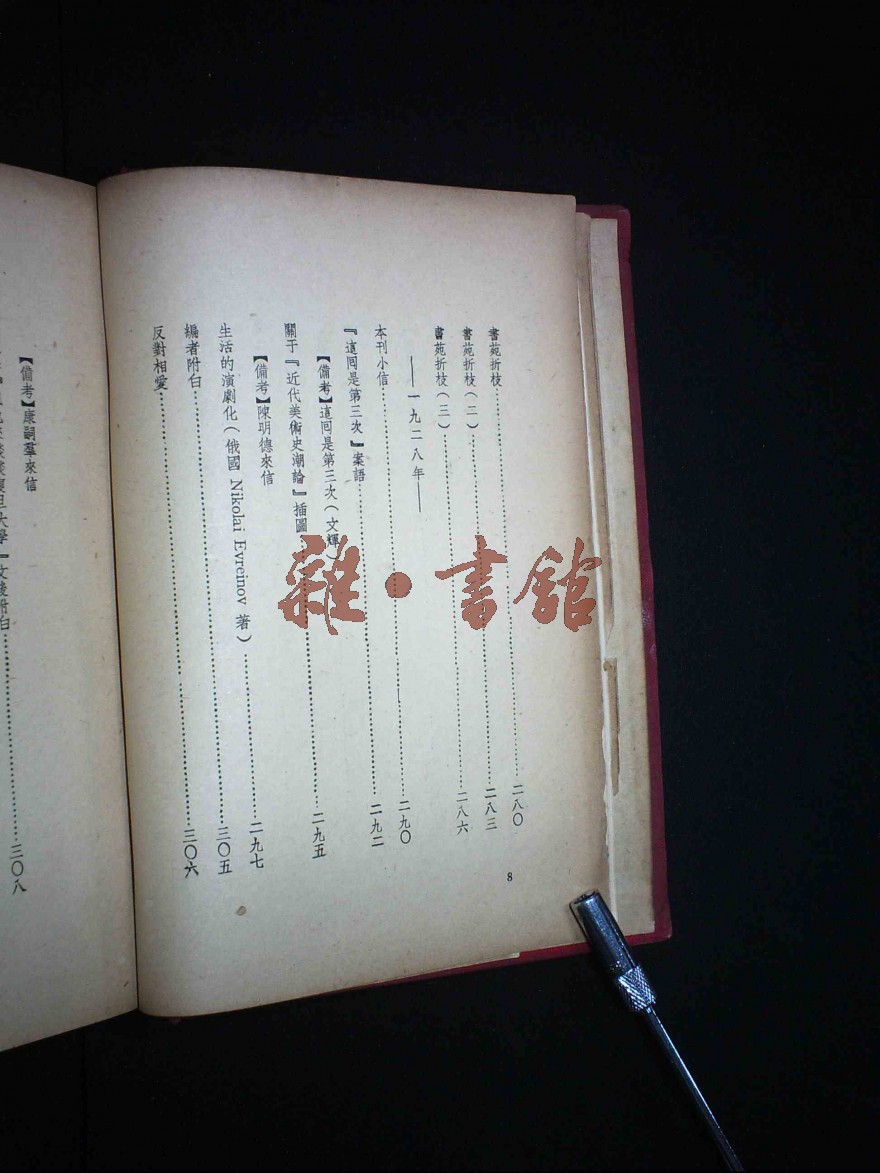 書苑折枝……二八〇
書苑折枝（二）……二八三
書苑折枝（三）……二八六
——一九二八年——
本刊小信……二九〇
『這回是第三次』案語……二九二
【備考】這回是第三次（文輝）
關于『近代美術史潮論』插圖……二九五
【備考】陳明德來信
生活的演劇化（俄國 Nikolai Evreinov 著）……二九七
編者附白……三〇五
反對相愛……三〇六
8
【備考】康嗣羣來信
復旦大學』文後附白……三〇八
雜·書館